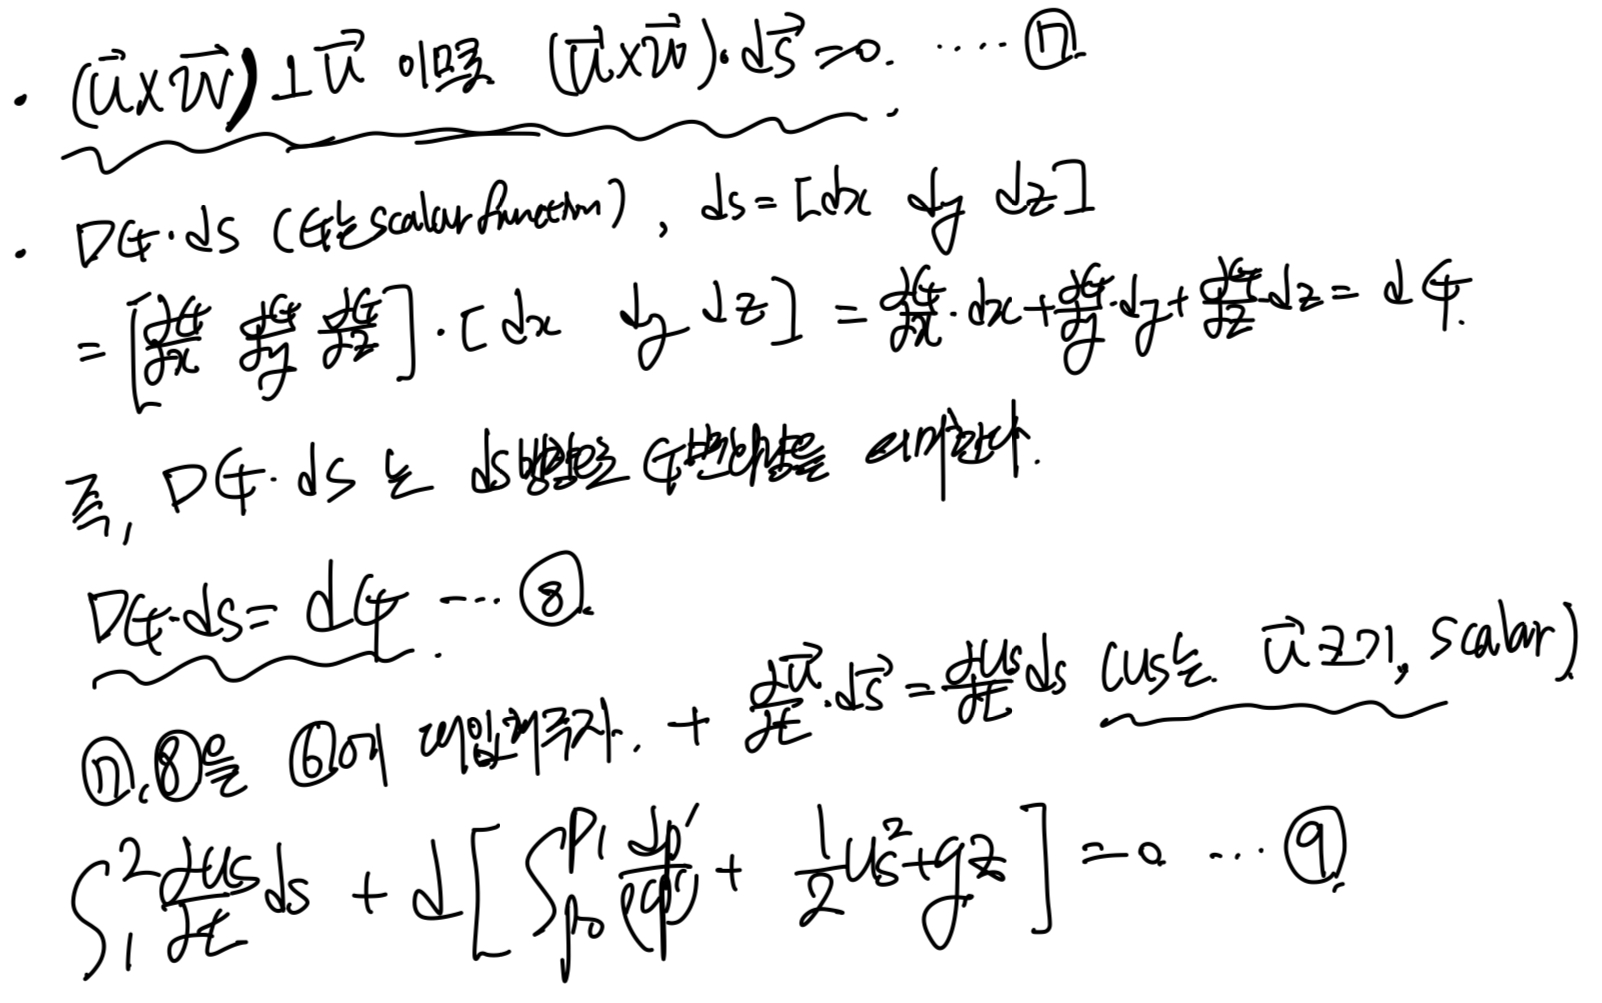 · (u⃗×w⃗)⊥u⃗ 이므로 (u⃗×w⃗)·ds⃗=0. ····· ⑦.
· ∇φ·ds (φ는 scalar function), ds=[dx dy dz]
= [∂φ/∂x ∂φ/∂y ∂φ/∂z]·[dx dy dz] = ∂φ/∂x·dx+∂φ/∂y·dy+∂φ/∂z·dz= dφ.
즉, ∇φ·ds 는 ds방향으로 φ변화량을 의미한다.
∇φ·ds= dφ ···· ⑧.
⑦,⑧을 ⑥에 대입해주자. + ∂u⃗/∂t·ds⃗=∂us/∂t ds (us는 u⃗ 크기, scalar)
∫₁² ∂us/∂t ds + d[∫_{p0}^{p1} dp'/ρ(p') + 1/2 us²+gz] =0 ··· ⑨.